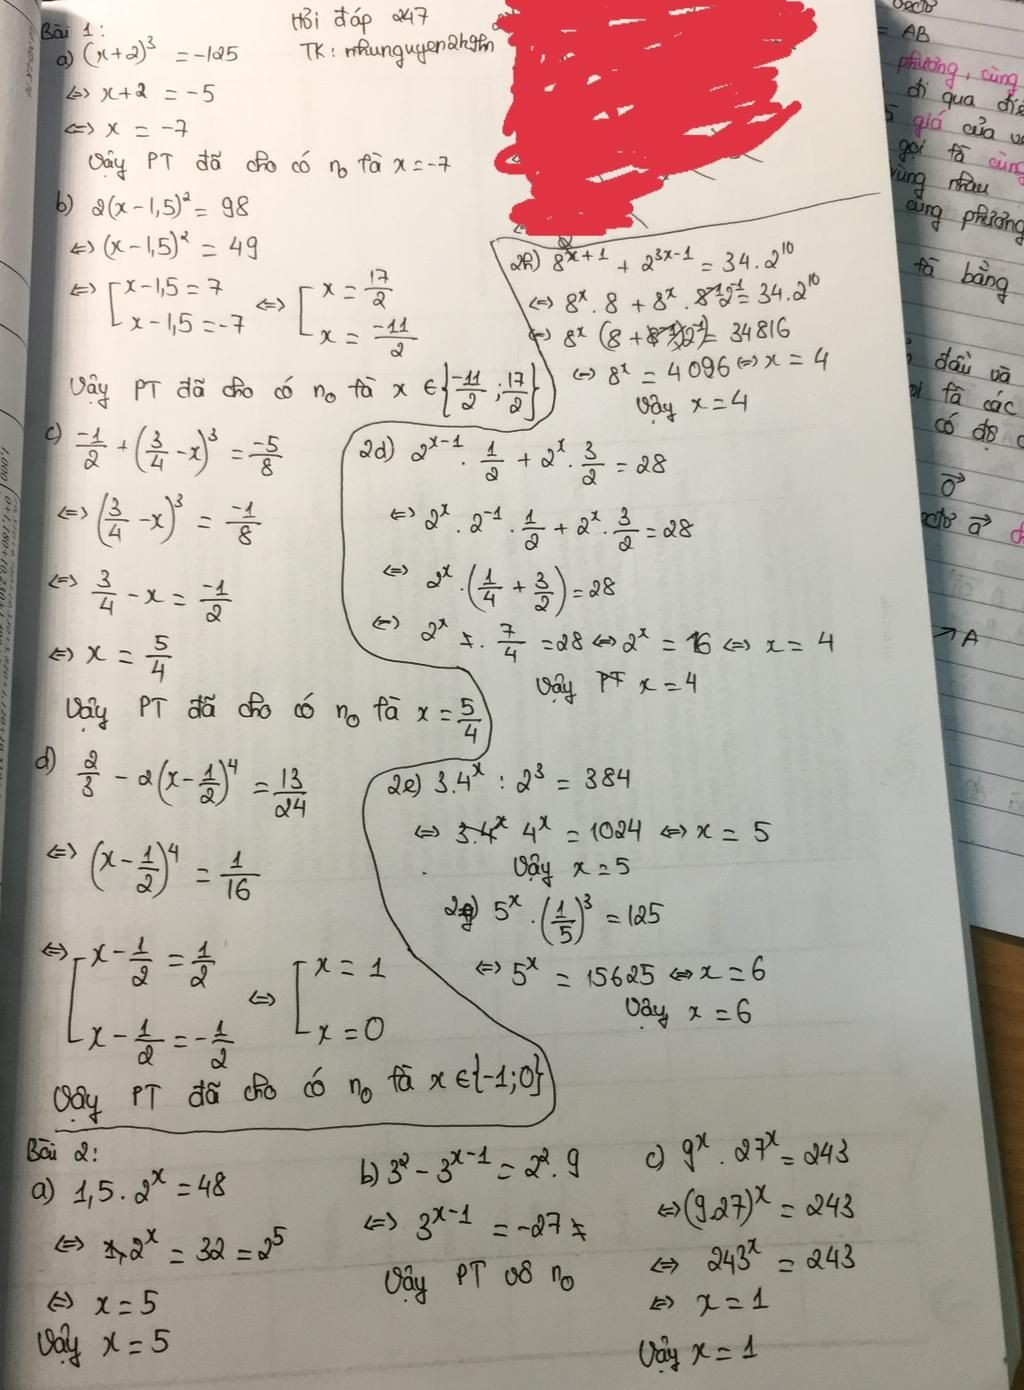 Hỏi đáp 247
TK: nhunguyen2k9hn
Bài 1:
a) (x+2)³ = -125
⇔ x+2 = -5
⇔ x = -7
Vậy PT đã cho có n₀ là x = -7
b) 2(x-1,5)² = 98
⇔ (x-1,5)² = 49
⇔ [ x-1,5 = 7 ⇔ [ x = 17/2
x-1,5 = -7 x = -11/2
Vậy PT đã cho có n₀ là x ∈ {-11/2 ; 17/2}
c) -1/2 + (3/4 - x)³ = -5/8
⇔ (3/4 - x)³ = -1/8
⇔ 3/4 - x = -1/2
⇔ x = 5/4
Vậy PT đã cho có n₀ là x = 5/4
d) 2/3 - 2(x - 1/2)⁴ = 13/24
⇔ (x - 1/2)⁴ = 1/16
⇔ [ x - 1/2 = 1/2 ⇔ [ x = 1
x - 1/2 = -1/2 x = 0
Vậy PT đã cho có n₀ là x ∈ {-1; 0}
2h) 8^(x+1) + 2^(3x-1) = 34 . 2¹⁰
⇔ 8ˣ . 8 + 8ˣ . 2⁻¹ = 34 . 2¹⁰
⇔ 8ˣ (8 + 2⁻¹) = 34816
⇔ 8ˣ = 4096 ⇔ x = 4
Vậy x = 4
2d) 2^(x-1) . 1/2 + 2ˣ . 3/2 = 28
⇔ 2ˣ . 2⁻¹ . 1/2 + 2ˣ . 3/2 = 28
⇔ 2ˣ . (1/4 + 3/2) = 28
⇔ 2ˣ . 7/4 = 28 ⇔ 2ˣ = 16 ⇔ x = 4
Vậy PT x = 4
2e) 3.4ˣ : 2³ = 384
⇔ 3.4ˣ 4ˣ = 1024 ⇔ x = 5
Vậy x = 5
2g) 5ˣ . (1/5)³ = 125
⇔ 5ˣ = 15625 ⇔ x = 6
Vậy x = 6
Bài 2:
a) 1,5 . 2ˣ = 48
⇔ 2ˣ = 32 = 2⁵
⇔ x = 5
Vậy x = 5
b) 3² - 3^(x-1) = 2² . 9
⇔ 3^(x-1) = -27
Vậy PT vô n₀
c) 9ˣ . 27ˣ = 243
⇔ (9.27)ˣ = 243
⇔ 243ˣ = 243
⇔ x = 1
Vậy x = 1
= AB
phương, cùng
đi qua
giá của
gọi là cùng
cùng nhau
cùng phương
là bằng
đầu và
là các
có độ
A